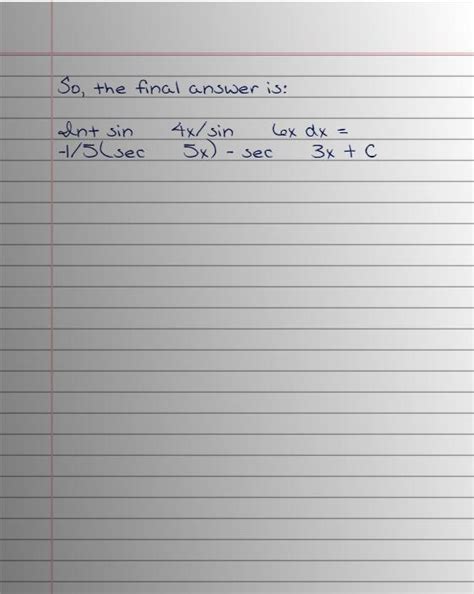 So, the final answer is:
Int sin 4x/sin 6x dx =
-1/5(sec 5x) - sec 3x + C